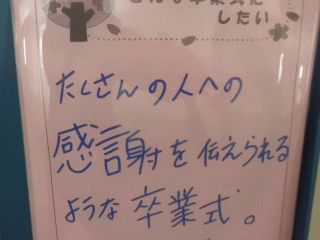 こんな卒業式に
したい
たくさんの人への
感謝を伝えられる
ような卒業式。